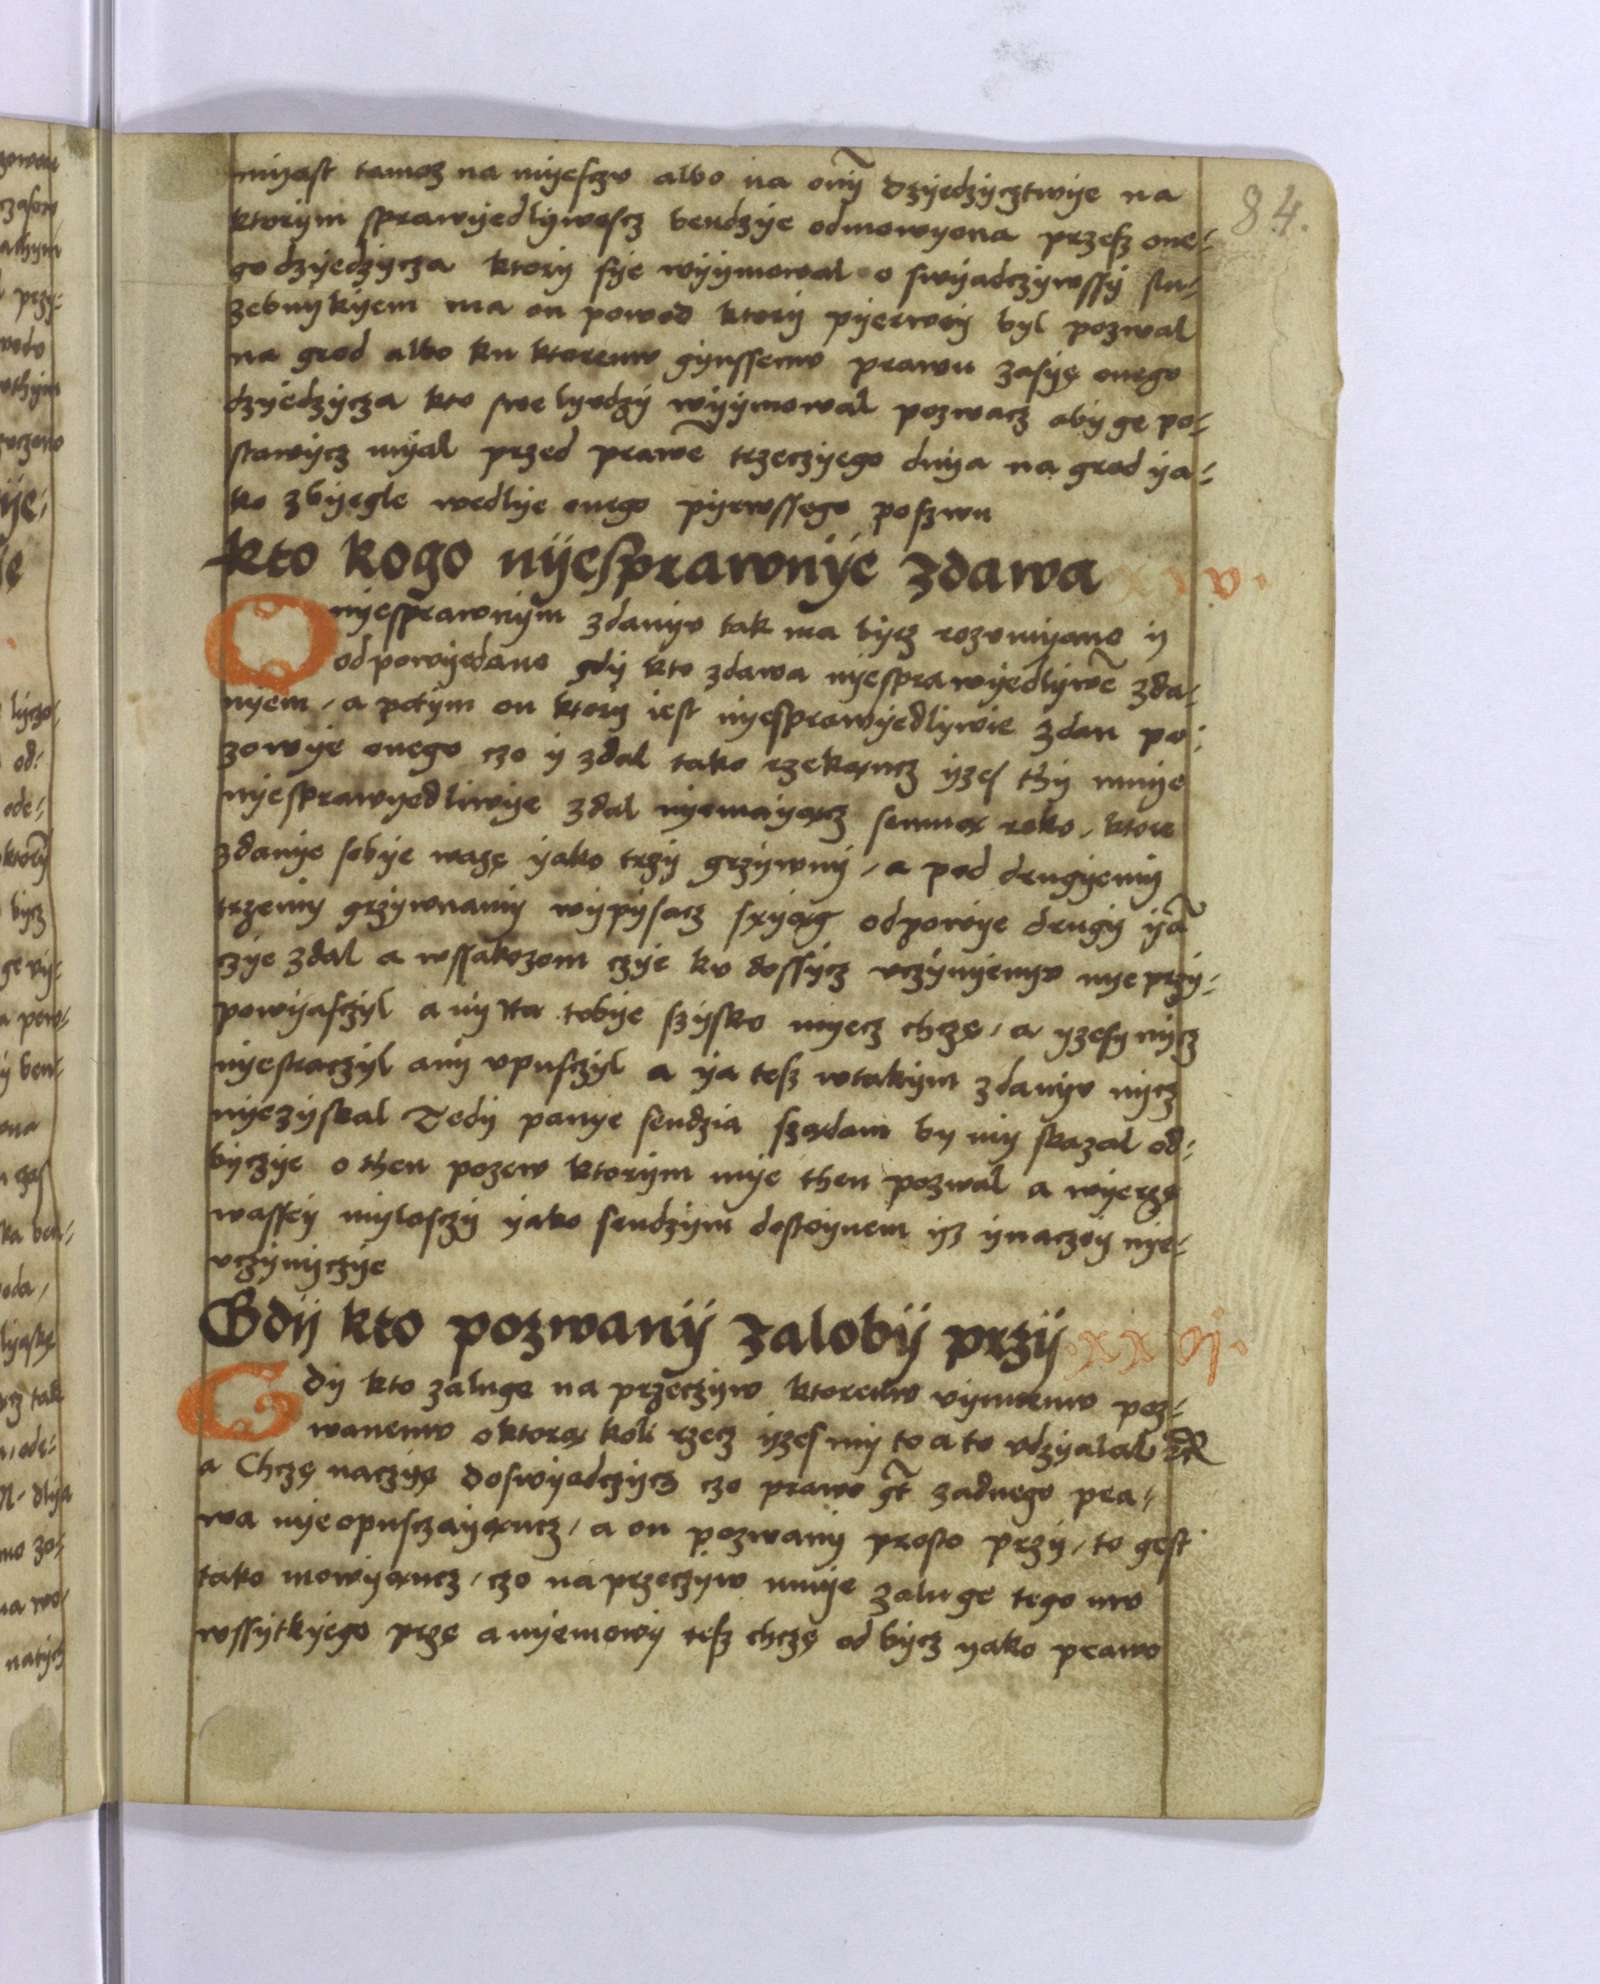 84.
myast tamosz na myesczv albo na onỹ dzyedzycztwye na
ktorym sprawyedlywoscz bendzye odmowyona przesz one-
go dzyedzycza ktory sye wyymowal o swyadczywssy slu-
zebnykyem ma on powod ktory pyerwey byl pozwal
na grod albo ku ktoremv gynssemv prawu zasye onego
dzyedzycza kto swe lyvdzy wyymowal pozwacz aby ge po-
stawycz myal przed prawẽ trzeczyego dnya na grod ya-
ko zbyegle wedlye onego pyerwssego poszwu
kto kogo nyesprawnye zdawa
O nyesprawnym zdanyv tak ma bycz rozvmyano y
odpowyedano gdy kto zdawa nyesprawyedlywẽ zda-
nyem, a potym on ktory iest nyesprawyedlywie zdan po-
zowye onego czo y zdal tako rzekaxncz yzes thy mnye
nyesprawyedliwye zdal nyemayaxcz semnax roko, ktore
zdanye sobye wazę yako trzy grzywny, a pod drugyemy
trzemy grzywnamy wypysacz sxyaxg odpowye drugy yã
czye zdal a wssakozem czye kv dossycz vczynyenyv nye przy-
powyasczyl a ny na tobye szysko myecz chczę, a yzesz nycz
nyestraczyl any vpusczyl a ya tesz wtakym zdanyv nycz
nyezyskal Tedy panye sendzia szaxdam by my skazal od-
byczye o then pozew ktorym mye then pozwal a wyerzę
wassey myloscy yako sendzym dostoynem ysz ynaczey nye-
vczynyczye
Gdy kto pozwany zaloby przy
Gdy kto zaluge na przeczyw ktoremv vynnemv poz-
wanemv o ktorax koli rzecz yzes my to a to vdzyalal
a Chczę naczyę doswyedczycz czo prawo gt̃ zadnego pra-
wa nyeopusczayaxncz, a on pozwany prosto przy, to gest
tako mowyaxncz, czo naprzeczyw mnye zaluge tego mv
wssytkyego przę a nyemowy tesz chczę od bycz yako prawo